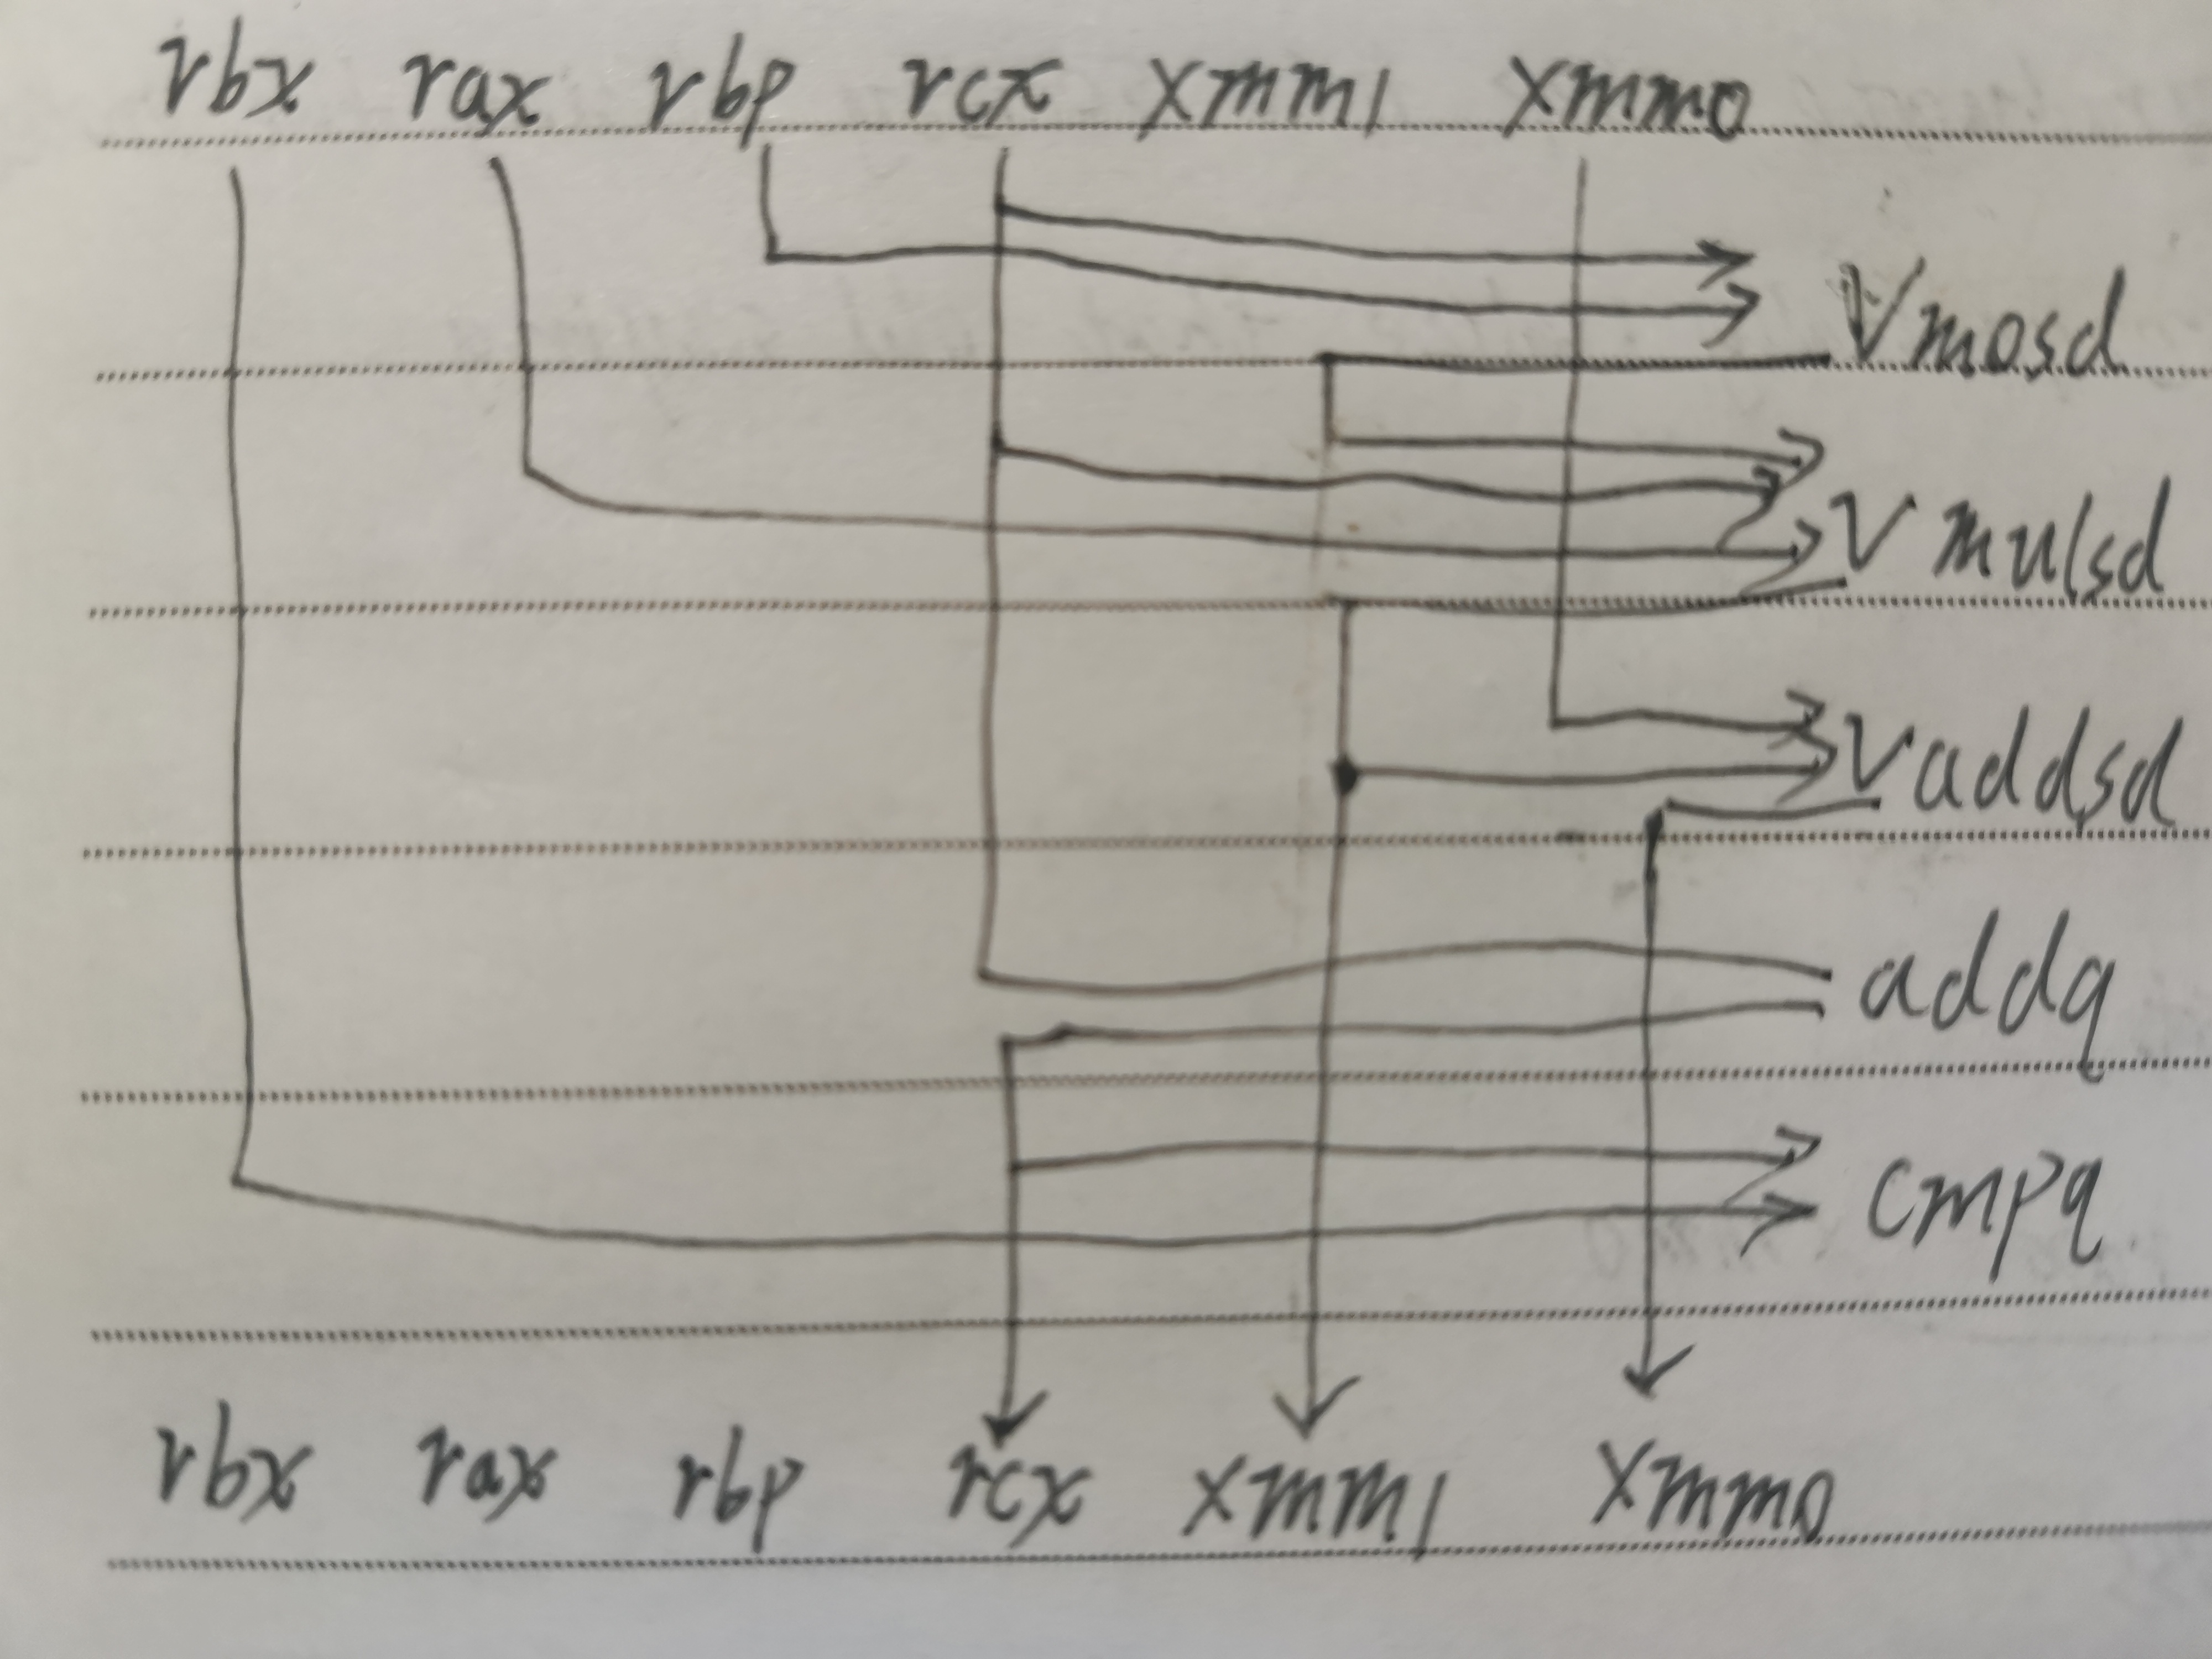 rbx rax rbp rcx xmm1 xmm0
Vmosd
Vmulsd
Vaddsd
addq
cmpq
rbx rax rbp rcx xmm1 xmm0